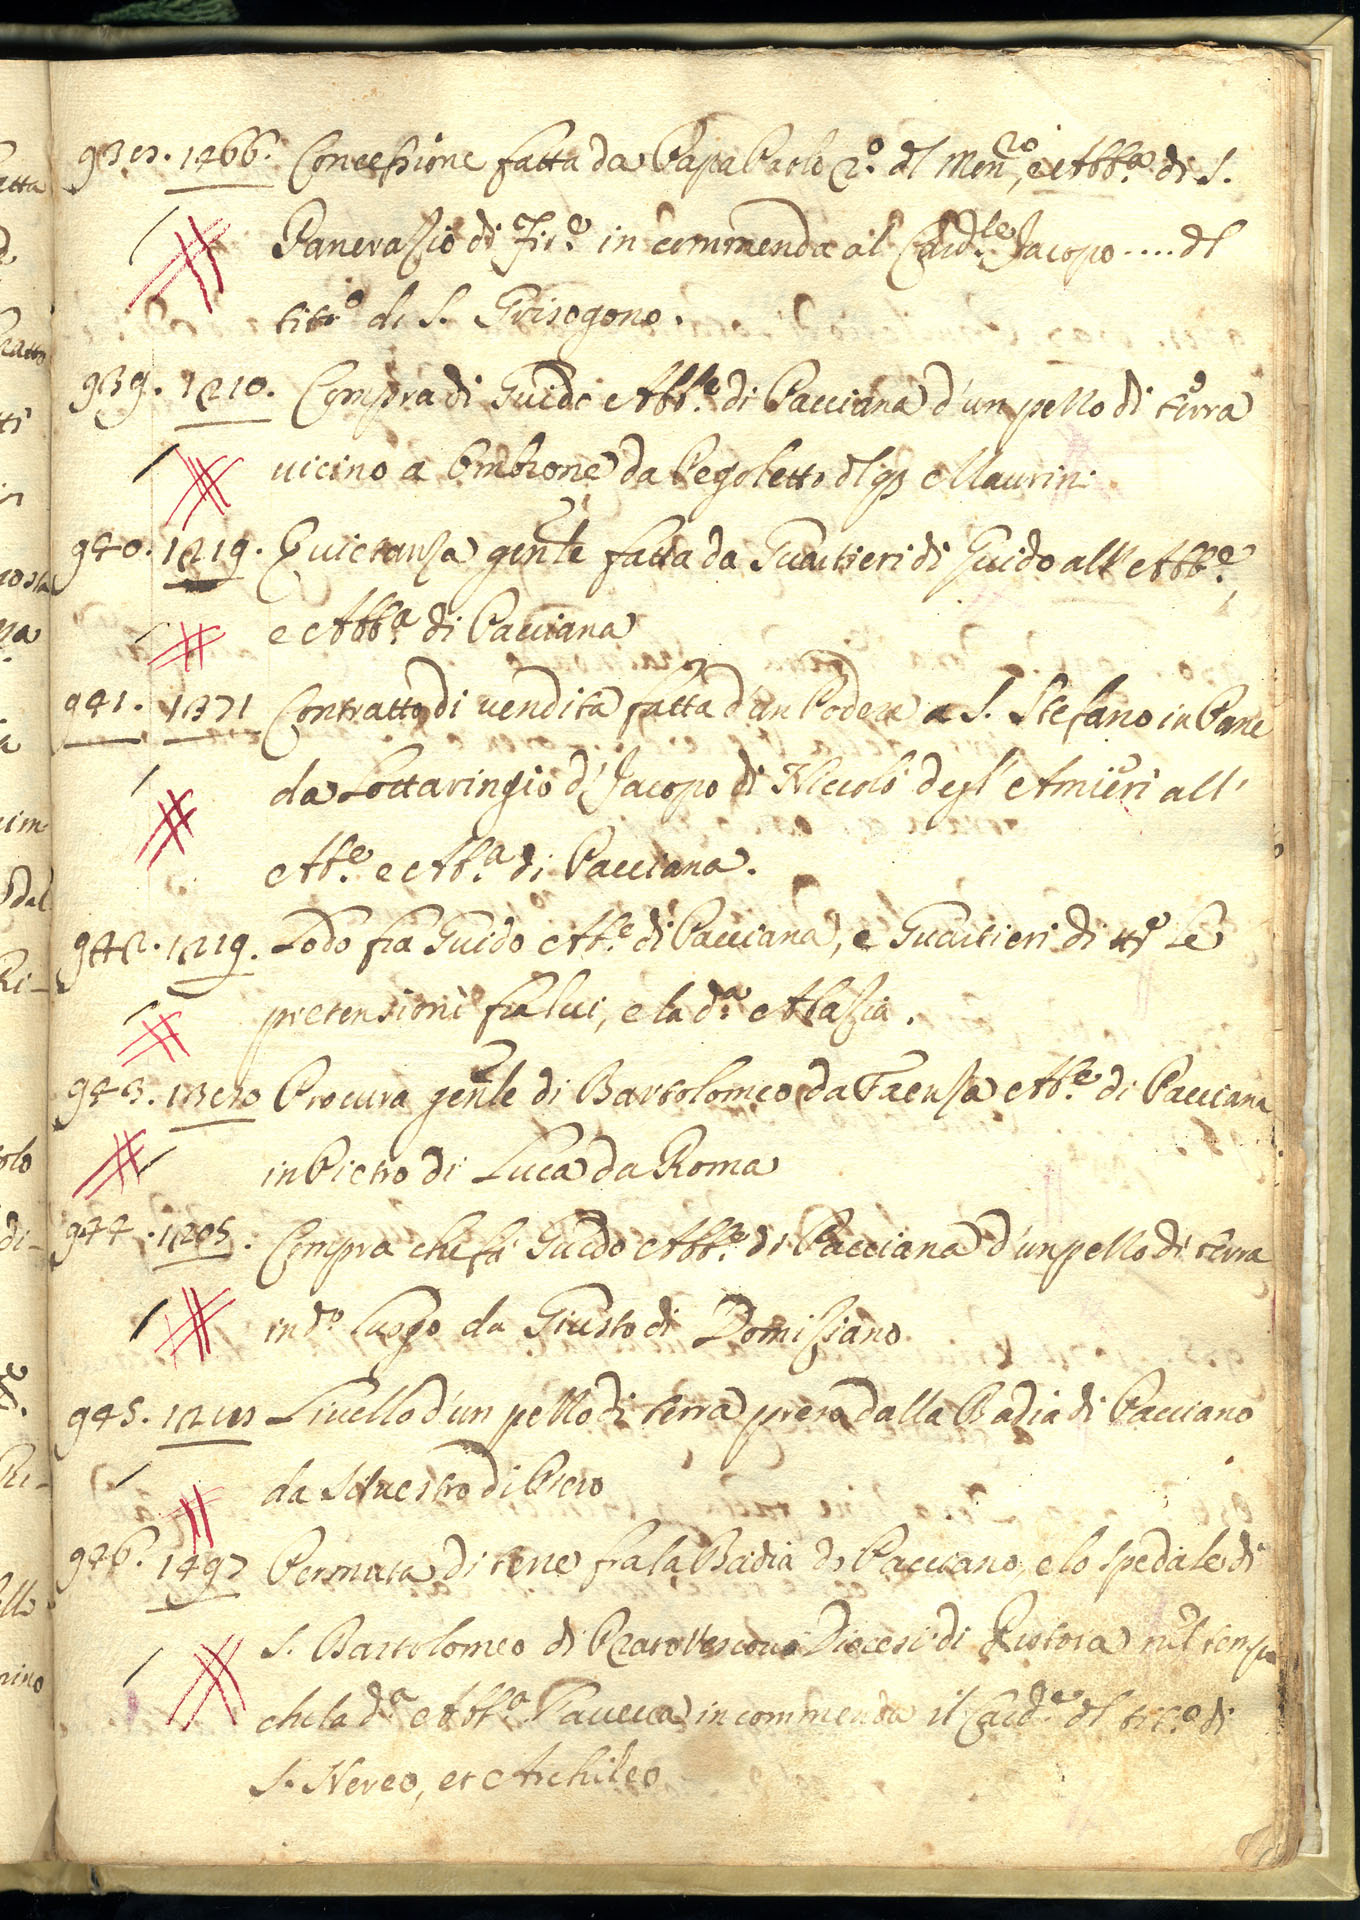 938. 1466. Concessione fatta da Papa Paolo 2.º del Mon.ro, e Abb.a di S.
Panerazio di Fir.e in commenda al Card.le Jacopo .... del
tit.o di S. Grisogono.
939. 1210. Compra di Guido Abb.e di Pacciana d'un pezzo di terra
vicino a Ombrone da Pegoletto del q. Maurin:
940. 1219. Quietanza gen.le fatta da Gualtieri di Guido all'Abb.e,
e Abb.a di Pacciana
941. 1371 Contratto di vendita fatta d'un Podere a S. Stefano in Pane
da Lottaringio d'Jacopo di Niccolò degl'Amieri all'
Ab.e e Ab.a di Pacciana.
942. 1219. Lodo fra Guido Ab.e di Pacciana, e Gualtieri di Le
pretensioni fra lui, e la d.a Abazia.
943. 1380 Procura gen.le di Bartolomeo da Faenza Ab.e di Pacciana
in Pietro di Luca da Roma
944. 1205. Compra che fà Guido Abb.e di Pacciana d'un pezzo di terra
in d.o luogo da Giusto di Domiziano
945. Livello d'un pezzo di terra preso dalla Badia di Pacciano
da Silvestro di Piero
946. 1497 Permuta di terre fra la Badia di Pacciano, e lo spedale di
S. Bartolomeo di Prato Vescovo Diocesi di Pistoia nel tempo
che la d.a Abb.a l'aveva in commenda il Card.e del tit.o di
S. Nereo, et Achileo